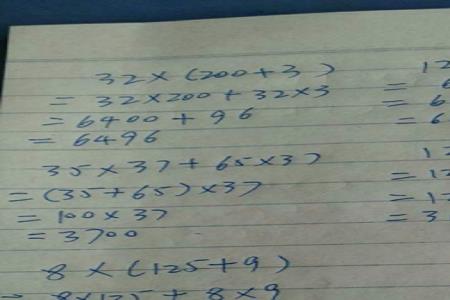 32×(200+3)
=32×200+32×3
=6400+96
=6496
35×37+65×37
=(35+65)×37
=100×37
=3700
8×(125+9)
=8×125+8×9
12
=
= 6
= 6
12
= 12
= 12
= 3